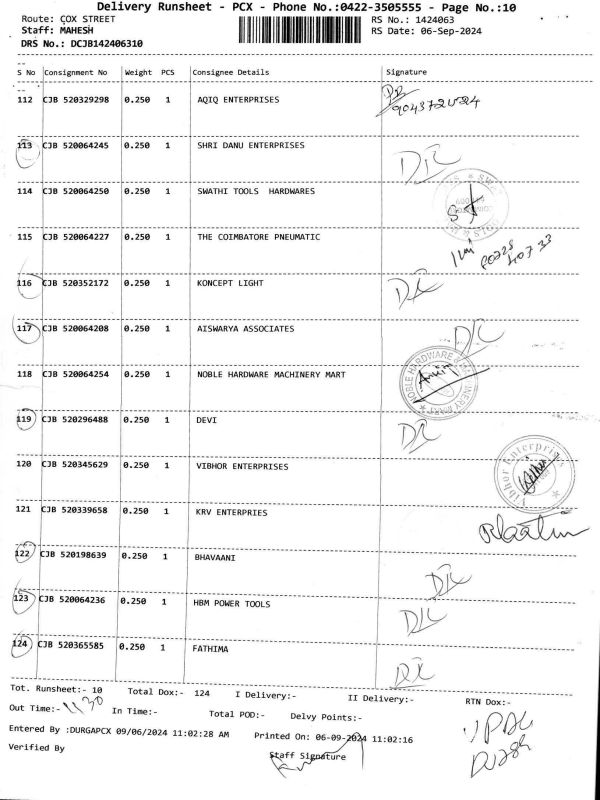 Delivery Runsheet - PCX - Phone No.:0422-3505555 - Page No.:10
Route: COX STREET
RS No.: 1424063
Staff: MAHESH
RS Date: 06-Sep-2024
DRS No.: DCJB142406310
S No Consignment No Weight PCS Consignee Details Signature
112 CJB 520329298 0.250 1 AQIQ ENTERPRISES
113 CJB 520064245 0.250 1 SHRI DANU ENTERPRISES
114 CJB 520064250 0.250 1 SWATHI TOOLS HARDWARES
115 CJB 520064227 0.250 1 THE COIMBATORE PNEUMATIC
116 CJB 520352172 0.250 1 KONCEPT LIGHT
117 CJB 520064208 0.250 1 AISWARYA ASSOCIATES
118 CJB 520064254 0.250 1 NOBLE HARDWARE MACHINERY MART
119 CJB 520296488 0.250 1 DEVI
120 CJB 520345629 0.250 1 VIBHOR ENTERPRISES
Vibhor Enterprises
121 CJB 520339658 0.250 1 KRV ENTERPRIES
122 CJB 520198639 0.250 1 BHAVAANI
123 CJB 520064236 0.250 1 HBM POWER TOOLS
124 CJB 520365585 0.250 1 FATHIMA
Tot. Runsheet:- 10 Total Dox:- 124 I Delivery:- II Delivery:- RTN Dox:-
Out Time:- 11.30 In Time:- Total POD:- Delvy Points:-
Entered By :DURGAPCX 09/06/2024 11:02:28 AM Printed On: 06-09-2024 11:02:16
Verified By Staff Signature